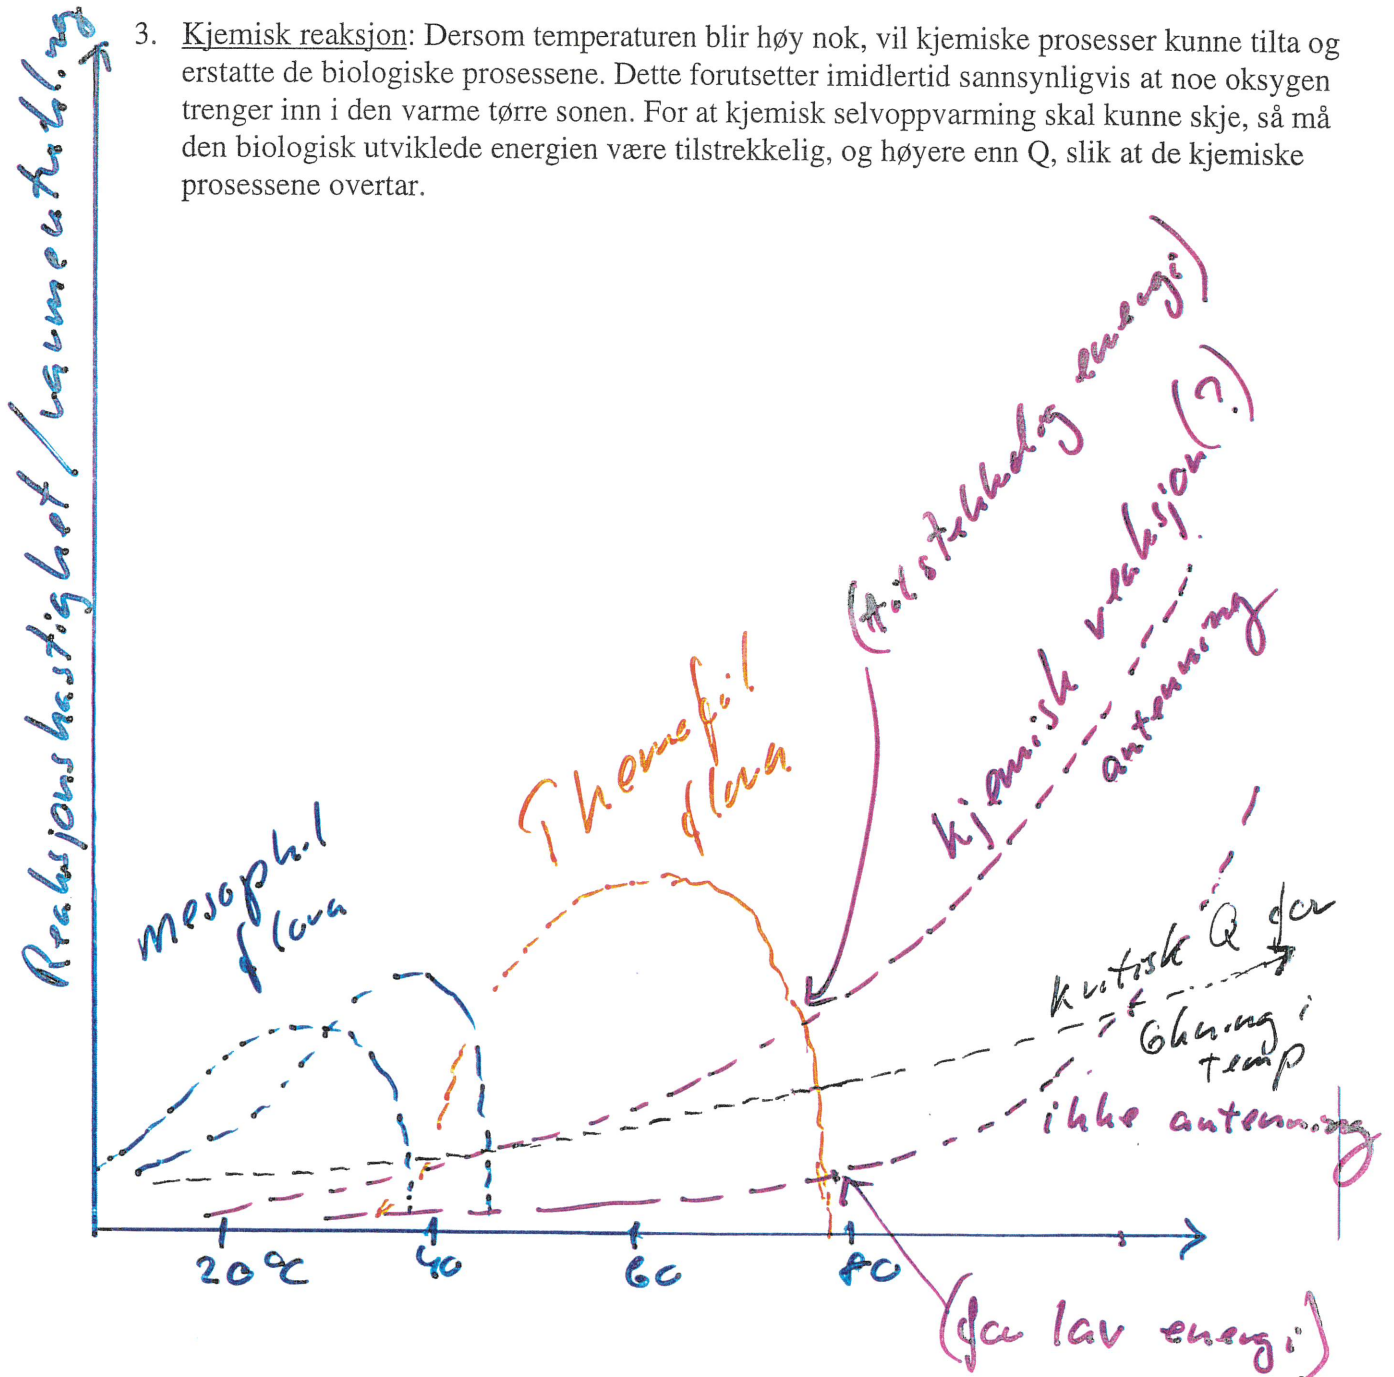 3. Kjemisk reaksjon: Dersom temperaturen blir høy nok, vil kjemiske prosesser kunne tilta og
erstatte de biologiske prosessene. Dette forutsetter imidlertid sannsynligvis at noe oksygen
trenger inn i den varme tørre sonen. For at kjemisk selvoppvarming skal kunne skje, så må
den biologisk utviklede energien være tilstrekkelig, og høyere enn Q, slik at de kjemiske
prosessene overtar.
Reaksjonshastighet/varmeutvikl.ng
(tilstekkelig energi)
kjemisk reaksjon (?)
antenning
Thermofil
flora
mesophil
flora
kritisk Q for
økning i
temp
ikke antenning
20°C
40
60
80
(for lav energi)